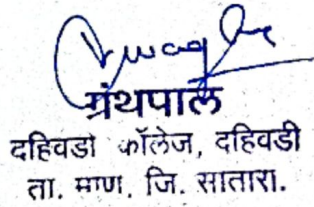 ग्रंथपाल
दहिवडी कॉलेज, दहिवडी
ता. माण. जि. सातारा.